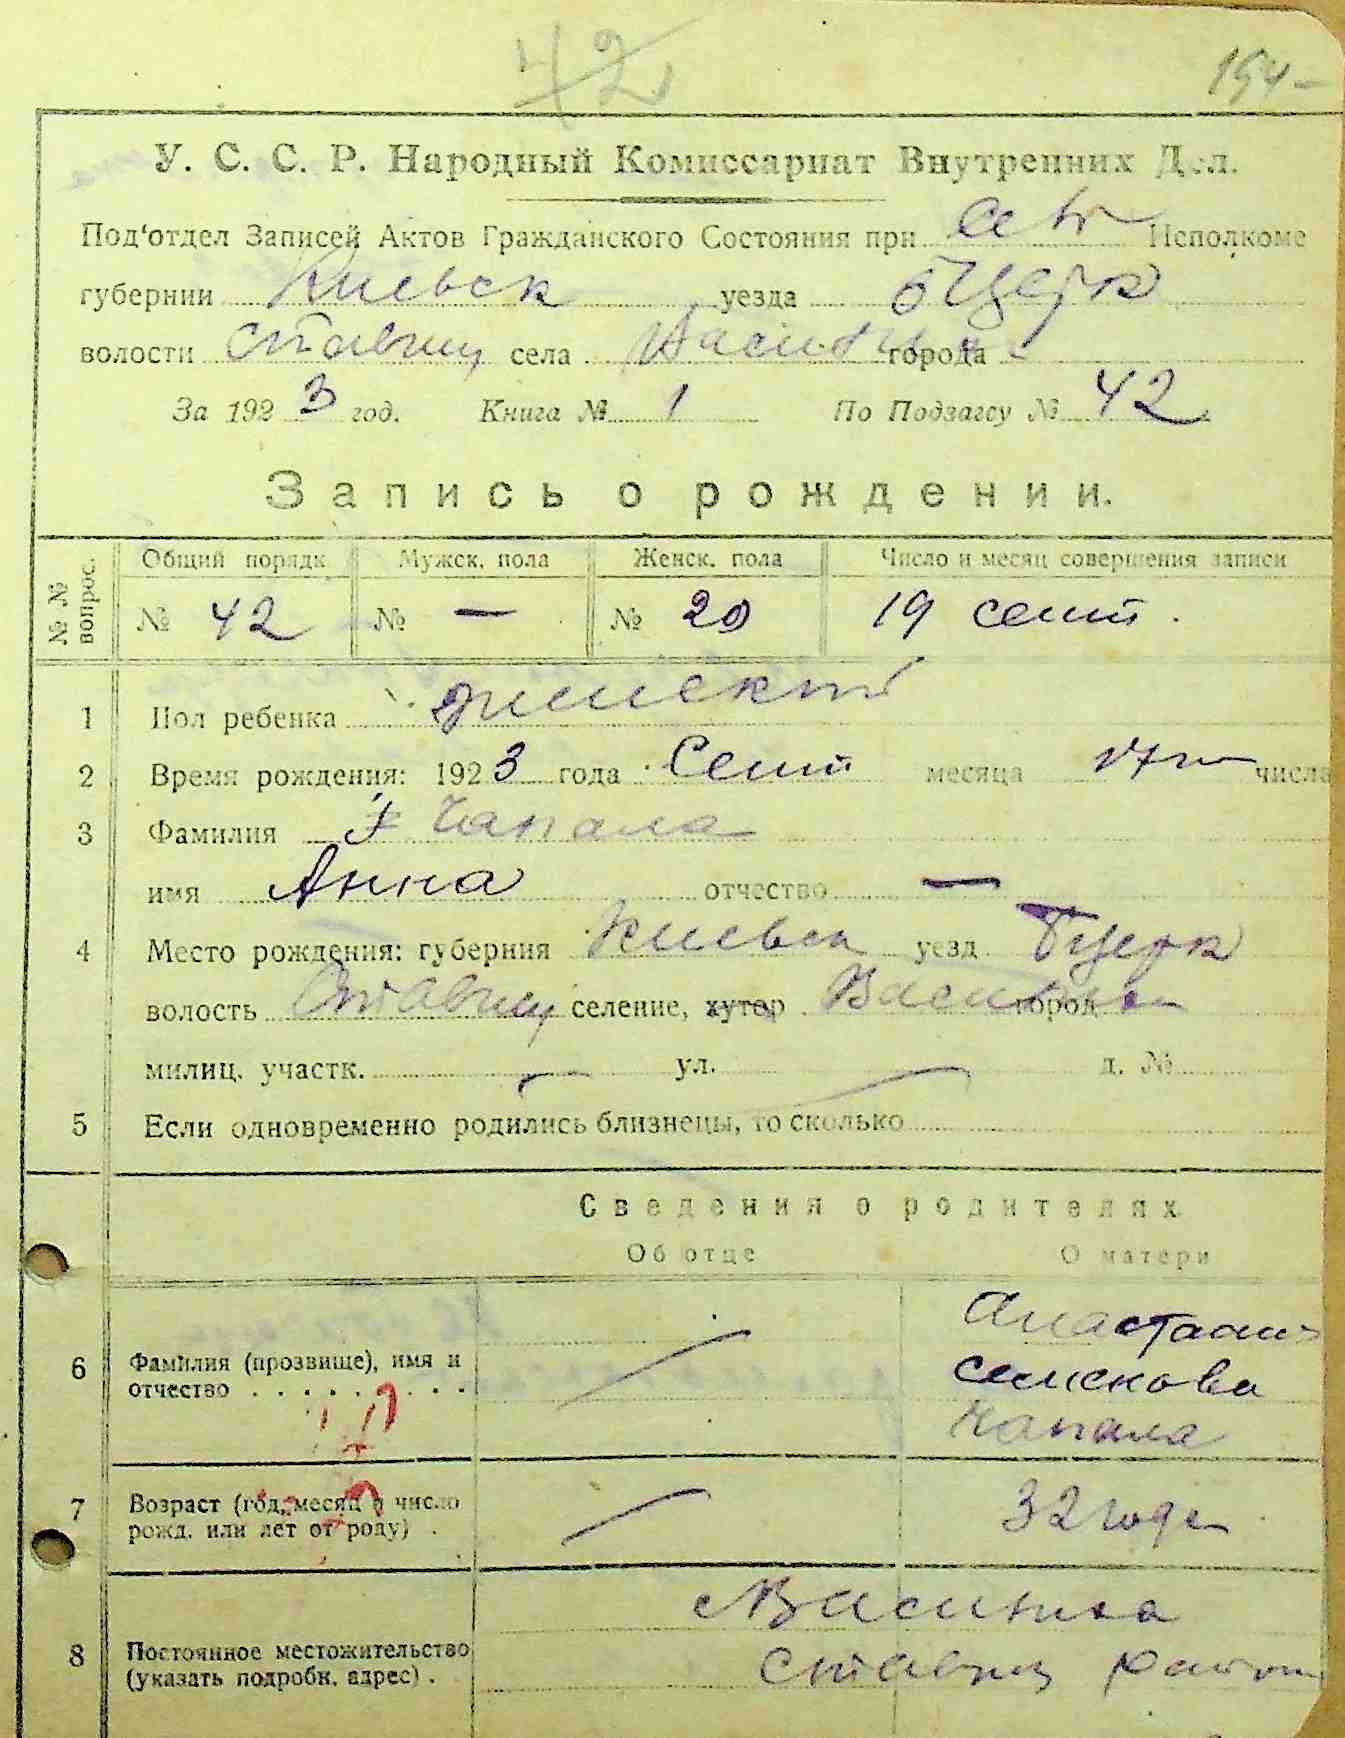 42
194-
У. С. С. Р. Народный Комиссариат Внутренних Дел.
Под'отдел Записей Актов Гражданского Состояния при Исполкоме
губернии Киевск уезда БЦерк
волости Ставищ села города
За 1923 год. Книга № 1 По Подзагсу № 42
Запись о рождении.
№ № вопрос. Общий порядк Мужск. пола Женск. пола Число и месяц совершения записи
№ 42 № — № 20 19 сент.
1 Пол ребенка женский
2 Время рождения: 1923 года Сент месяца 17го числа
3 Фамилия Чапала
имя Анна отчество —
4 Место рождения: губерния Киевск уезд БЦерк
волость Ставищ селение, хутор город
милиц. участк. — ул. — д. №
5 Если одновременно родились близнецы, то сколько
Сведения о родителях
Об отце О матери
6 Фамилия (прозвище), имя и отчество . . . . . . . . . Анастасия
Чапала
7 Возраст (год, месяц и число рожд. или лет от роду) . 32 года
8 Постоянное местожительство (указать подробн. адрес) .
Ставищ район